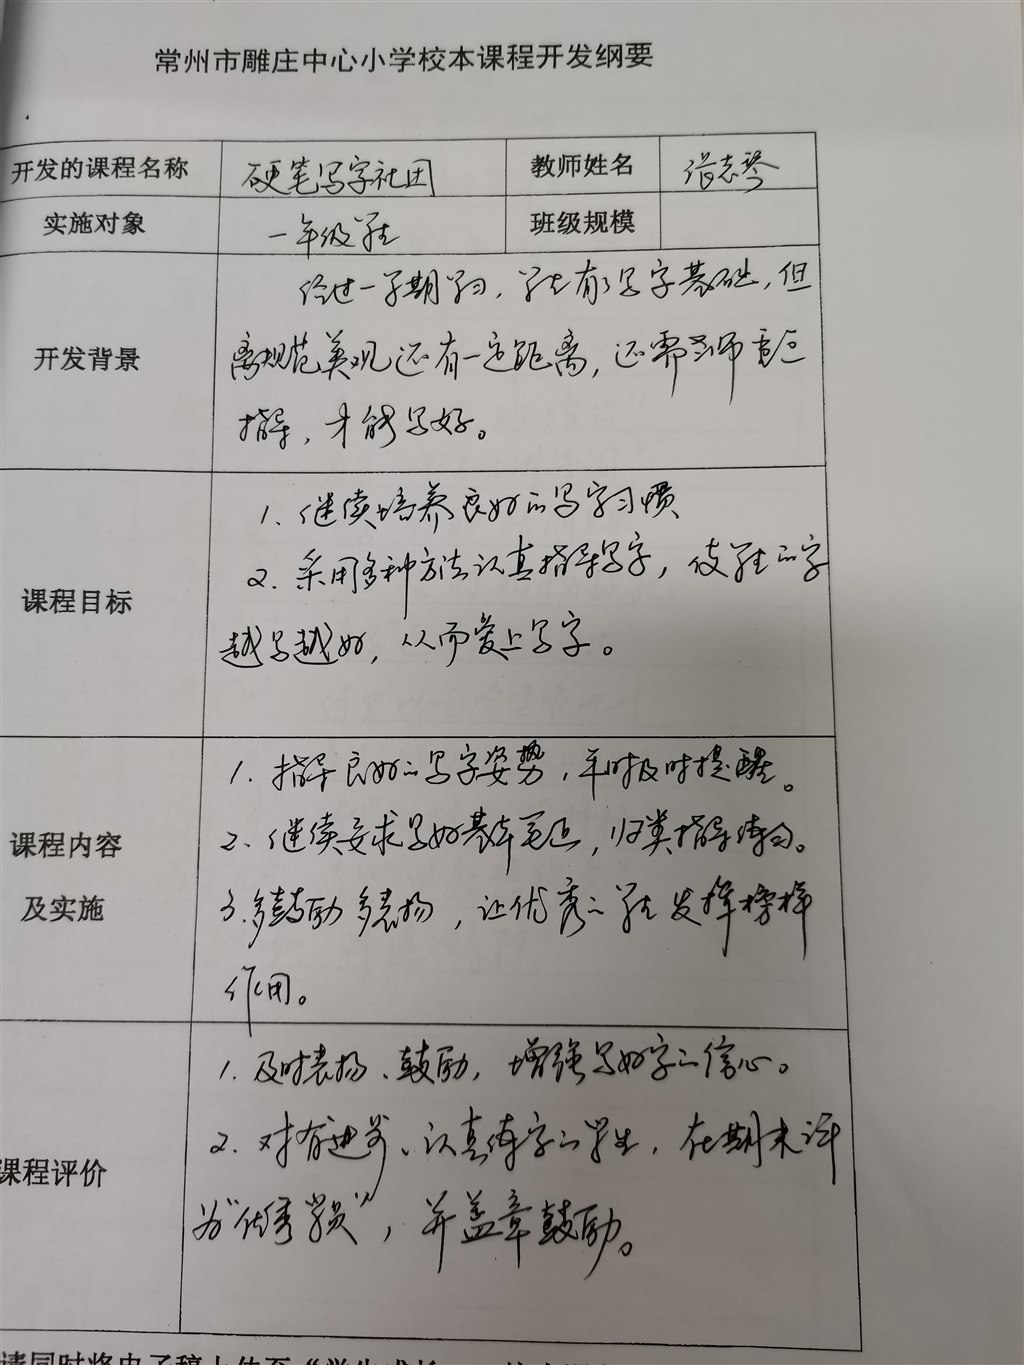 常州市雕庄中心小学校本课程开发纲要
开发的课程名称 硬笔写字社团 教师姓名 张志琴
实施对象 一年级学生 班级规模
开发背景
经过一学期学习，学生有了写字基础，但
离规范美观还有一定距离，还需老师重点
指导，才能写好。
课程目标
1、继续培养良好的写字习惯
2、采用多种方法认真指导写字，使学生的字
越写越好，从而爱上写字。
课程内容
及实施
1、指导良好的写字姿势，平时及时提醒。
2、继续要求写好基本笔画，归类指导练习。
3、多鼓励多表扬，让优秀的学生发挥榜样
作用。
课程评价
1、及时表扬、鼓励，增强写好字的信心。
2、对有进步、认真练字的学生，在期末评
为“优秀学员”，并盖章鼓励。